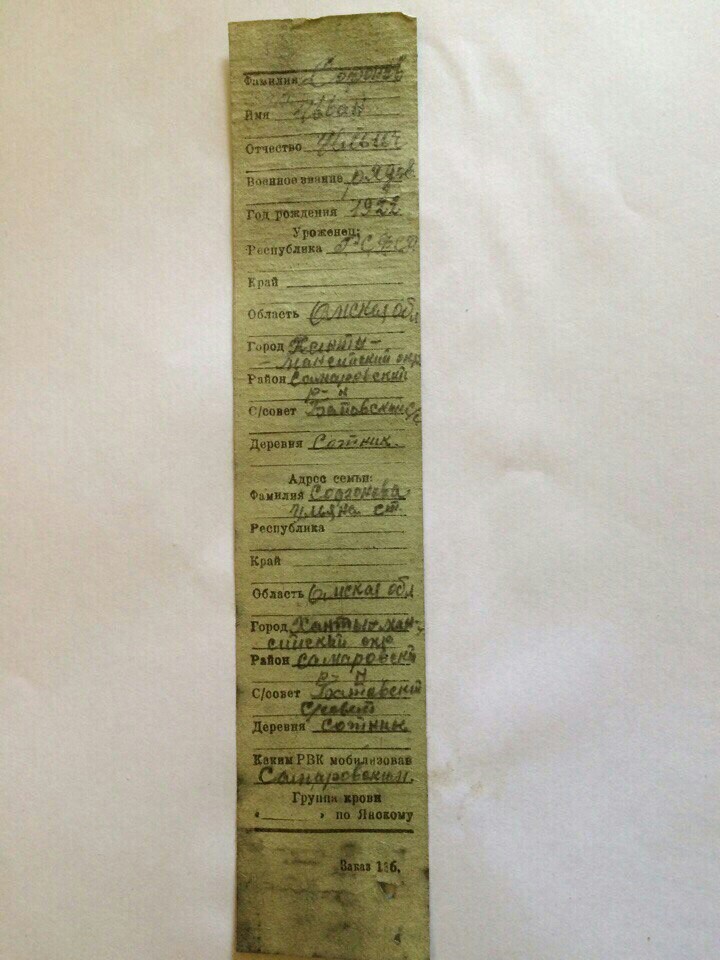 Фамилия
Имя Иван
Отчество Ильич
Военное звание рядов.
Год рождения 1922
Уроженец:
Республика РСФСР
Край
Область Омская обл
Город Ханты-
Мансийский окр
Район Самаровский
р-н
С/совет Батовский с/с
Деревня Сотник.
Адрес семьи:
Фамилия Согонева
Ульяна ст.
Республика
Край
Область Омская обл
Город Ханты-ман-
сийский окр
Район Самаровский
р-н
С/совет Батовский
совет
Деревня Сотник
Каким РВК мобилизован
Самаровским.
Группа крови
« » по Янскому
Заказ 136.